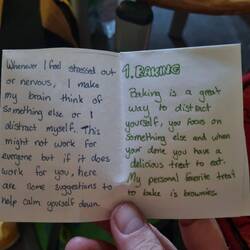 Whenever I feel stressed out
or nervous, I make
my brain think of
something else or I
distract myself. This
might not work for
everyone but if it does
work for you, here
are some suggestions to
help calm yourself down.
1. BAKING
Baking is a great
way to distract
yourself, you focus on
something else and when
your done you have a
delicious treat to eat.
My personal favorite treat
to bake is brownies.